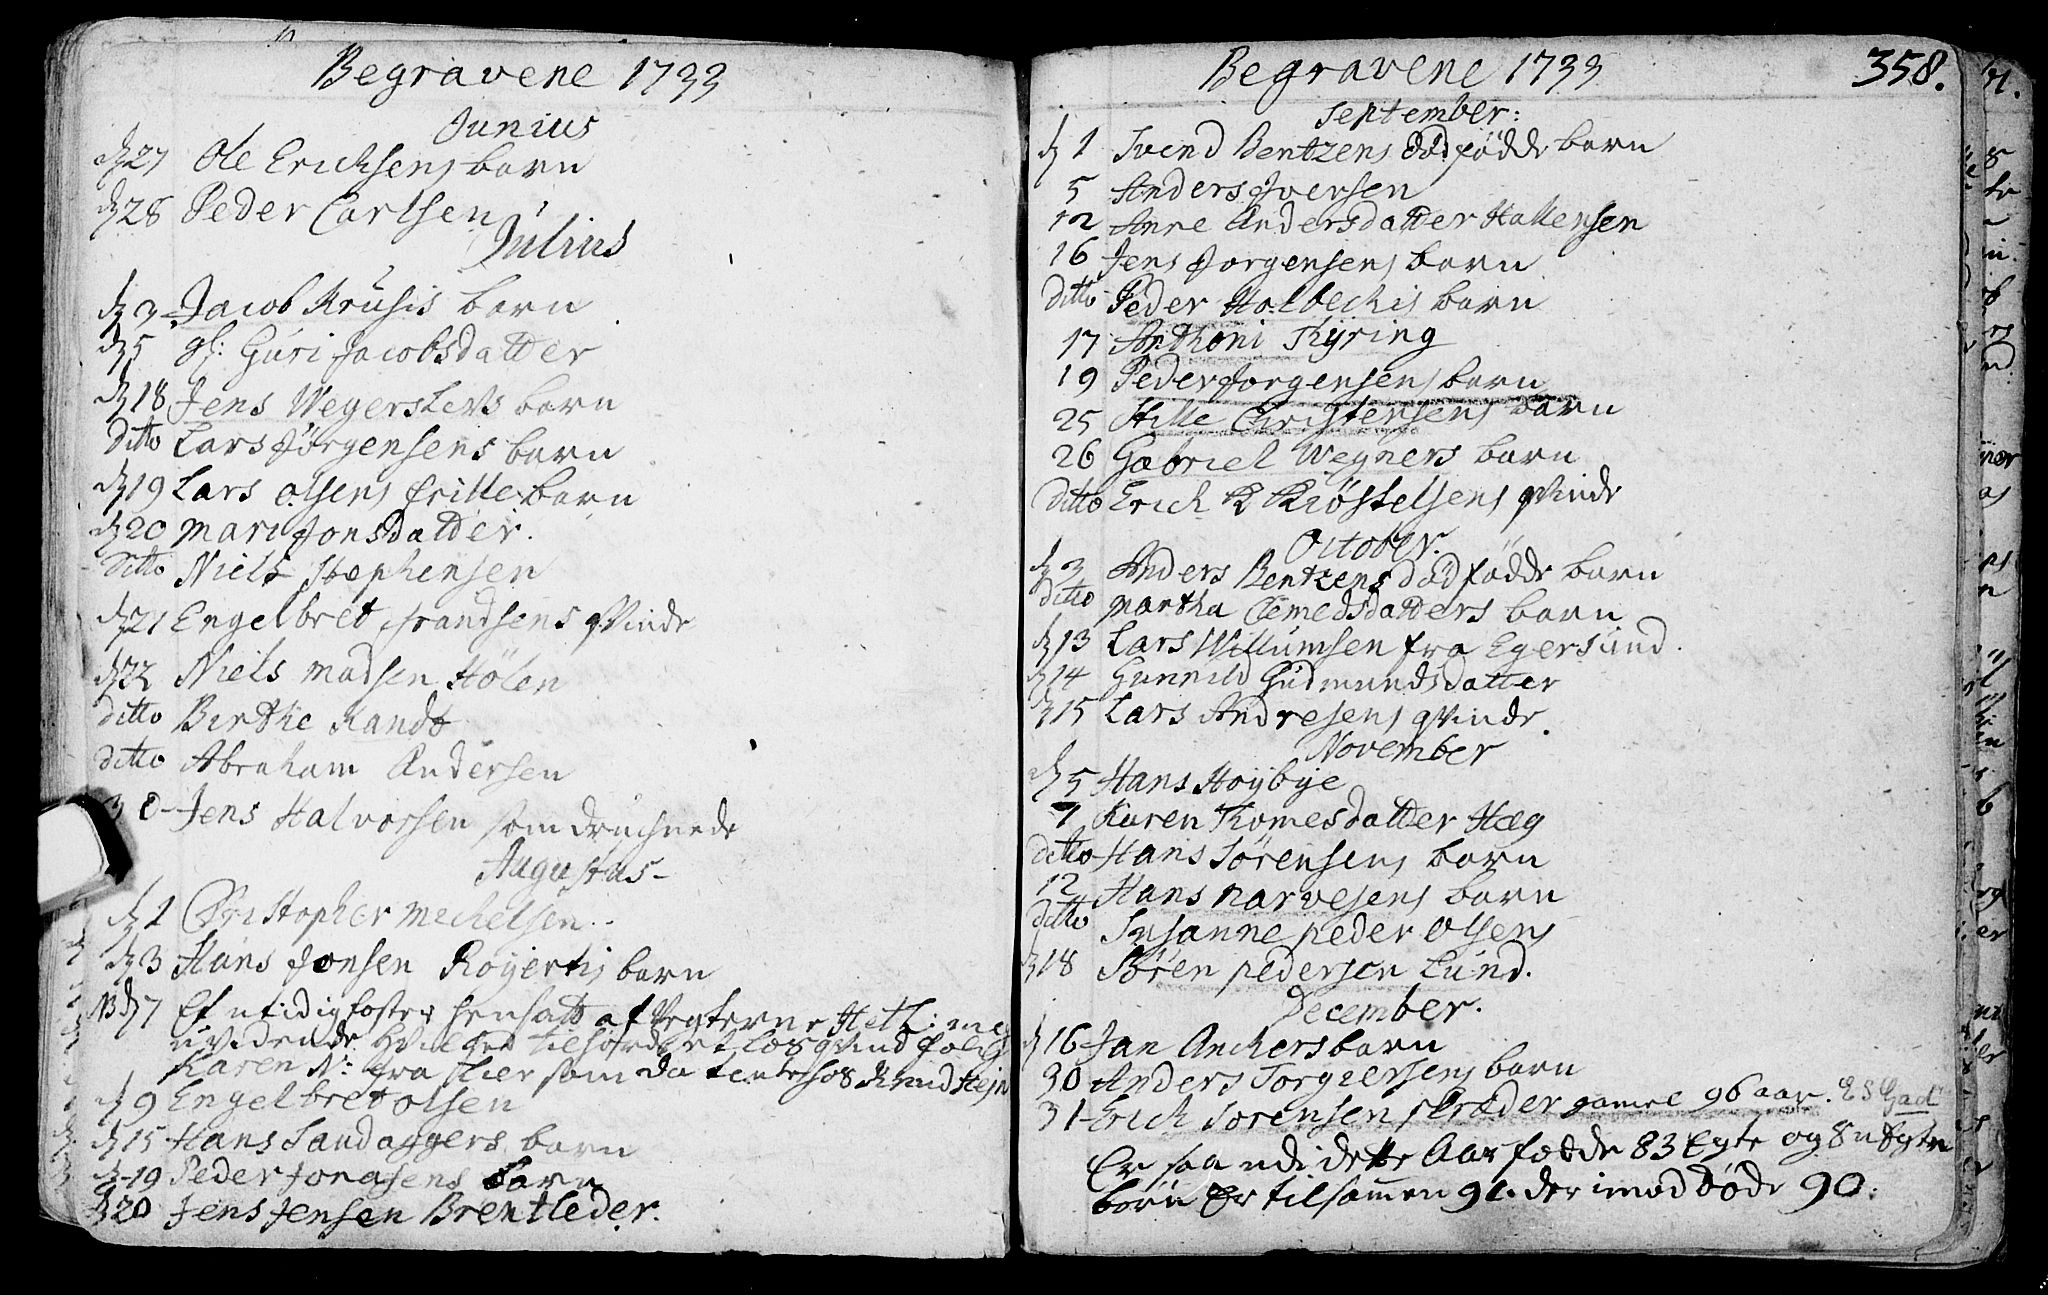 Begravene 1733
Junius
d 27 Ole Erichsens barn
d 28 Peder Carlsen
Julius
d 3 Jacob Krusis barn
d 5 gl: Guri Jacobsdatter
d 18 Jens Wegerslevs barn
Ditto Lars Jörgensens barn
d 19 Lars olsens barn
d 20 mari Jonsdatter.
ditto Niels Stephensen
d 21 Engelbret frandsens qvinde
d 22 Niels madsen Hölen
ditto Birthe Randt
ditto Abraham Andersen
30 Jens Halvorsen som druchnede
Augustus
d 1 Christopher michelsen
d 3 Hans Jonsen barn
NB d 7 Et utidig foster hensatt af Vegterne
uvidende hvilchet tilhörde et lös qvindfolch
Karen N: fra som da tiente hos Knud
d 9 Engelbret olsen
d 15 Hans Sandaggers barn
d 19 Peder Jonasens barn
d 20 Jens Jensen Brentleder.
Begravene 1733
358.
September:
d 1 Svend Bentzens dödfödde barn
5 Anders Iversen
12 Anne Andersdatter Hallensen
16 Jens Jorgensens barn
Ditto Peder Holbechis barn
17 Anthoni Thyring
19 Peder Jorgensens barn
25 Hille Christensens barn
26 Gabriel Wegners barn
Ditto Erich K Kiöstelsens qvinde
October.
d 3 Anders Bentzens dödfödde barn
ditto martha Clemedsdatters barn
d 13 Lars Willumsen fra Egersund.
d 14 Gunnild Gudmundsdatter
d 15 Lars Andresens qvinde.
November
d 5 Hans Hoybye
7 Karen Thomesdatter Hæg
ditto Hans Sörensens barn
12 Hans narvesens barn
ditto Susanne peder olsens
d 18 Sören pedersen Lund.
December.
d 16 Jan Anchers barn
30 Anders Torgiersens barn
31 Erich Sorensen skræder gamel 96 aar.
Er saa udi dette Aar födde 83 Egte og 8 uEgte
börn Er tilsammen 91. der imod döde 90.